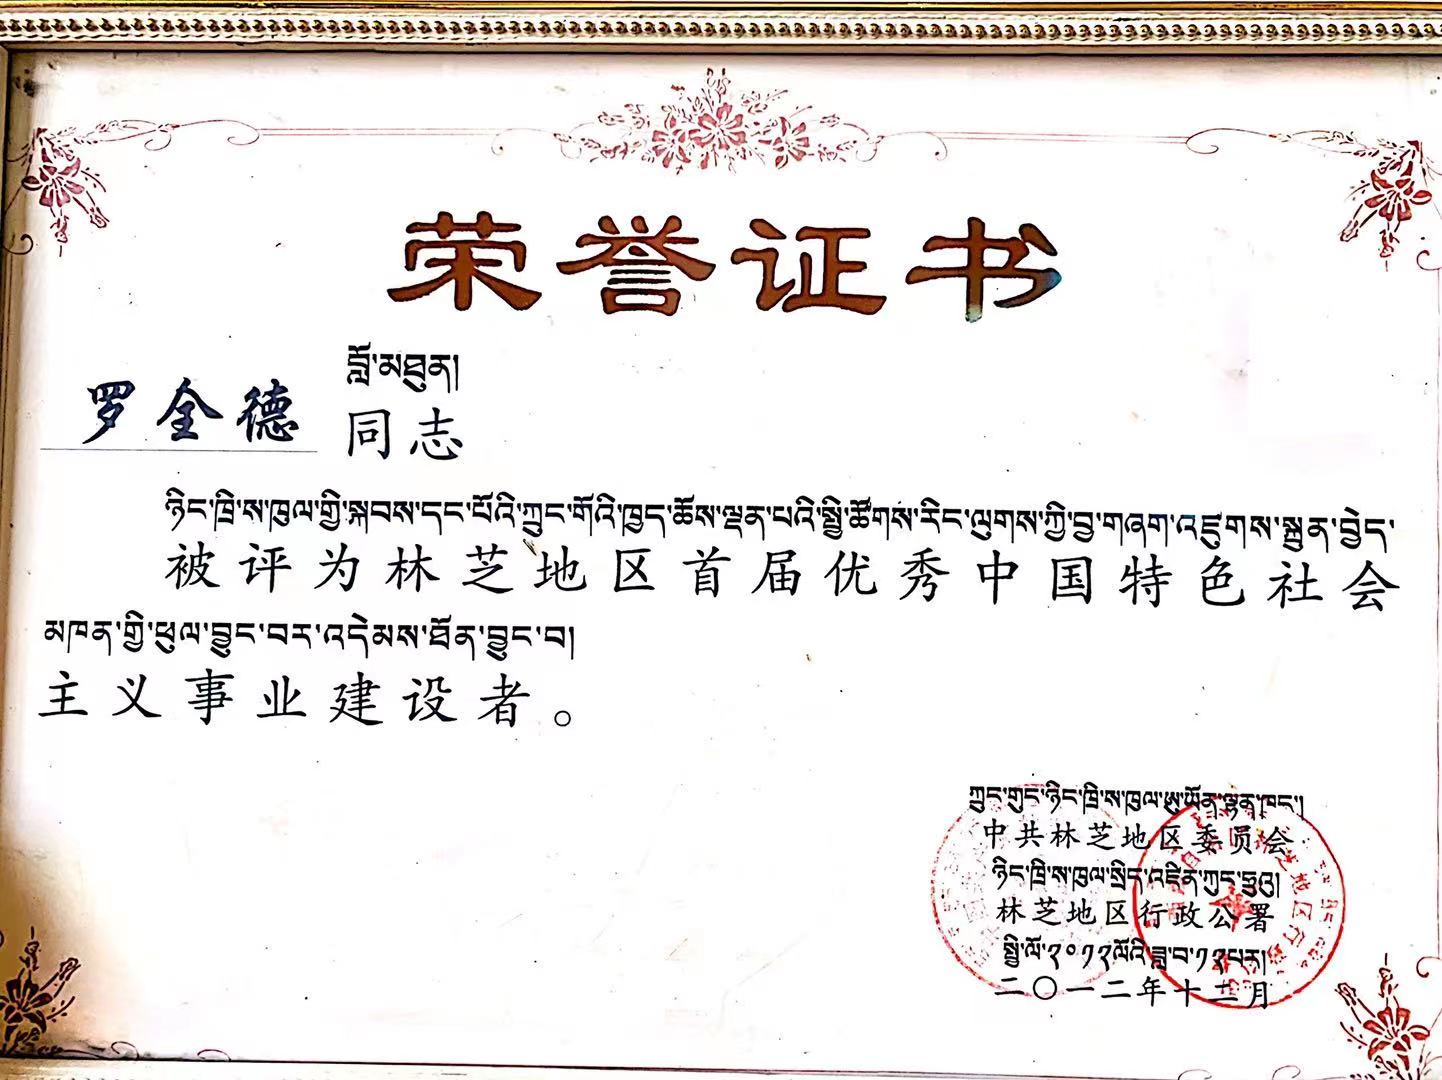 荣誉证书
བློ་མཐུན།
罗全德 同志
ཉིང་ཁྲི་ས་ཁུལ་གྱི་སྐབས་དང་པོའི་ཀྲུང་གོའི་ཁྱད་ཆོས་ལྡན་པའི་སྤྱི་ཚོགས་རིང་ལུགས་ཀྱི་བྱ་གཞག་འཛུགས་སྐྲུན་བྱེད་
被评为林芝地区首届优秀中国特色社会
མཁན་གྱི་ཕུལ་བྱུང་བར་འདེམས་ཐོན་བྱུང་བ།
主义事业建设者。
ཀྲུང་གུང་ཉིང་ཁྲི་ས་ཁུལ་ཨུ་ཡོན་ལྷན་ཁང་།
中共林芝地区委员会
ཉིང་ཁྲི་ས་ཁུལ་སྲིད་འཛིན་ཀུང་ཧྲུའུ།
林芝地区行政公署
སྤྱི་ལོ་༢༠༡༢ལོའི་ཟླ་བ་༡༢པར།
二〇一二年十二月